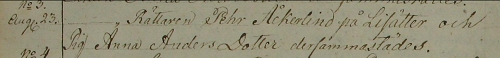 No 3.
Aug. 23. — „ Rättaren Pehr Åckerlind på Lisätter och
Pig. Anna Anders Dotter dersammastädes.
No 4